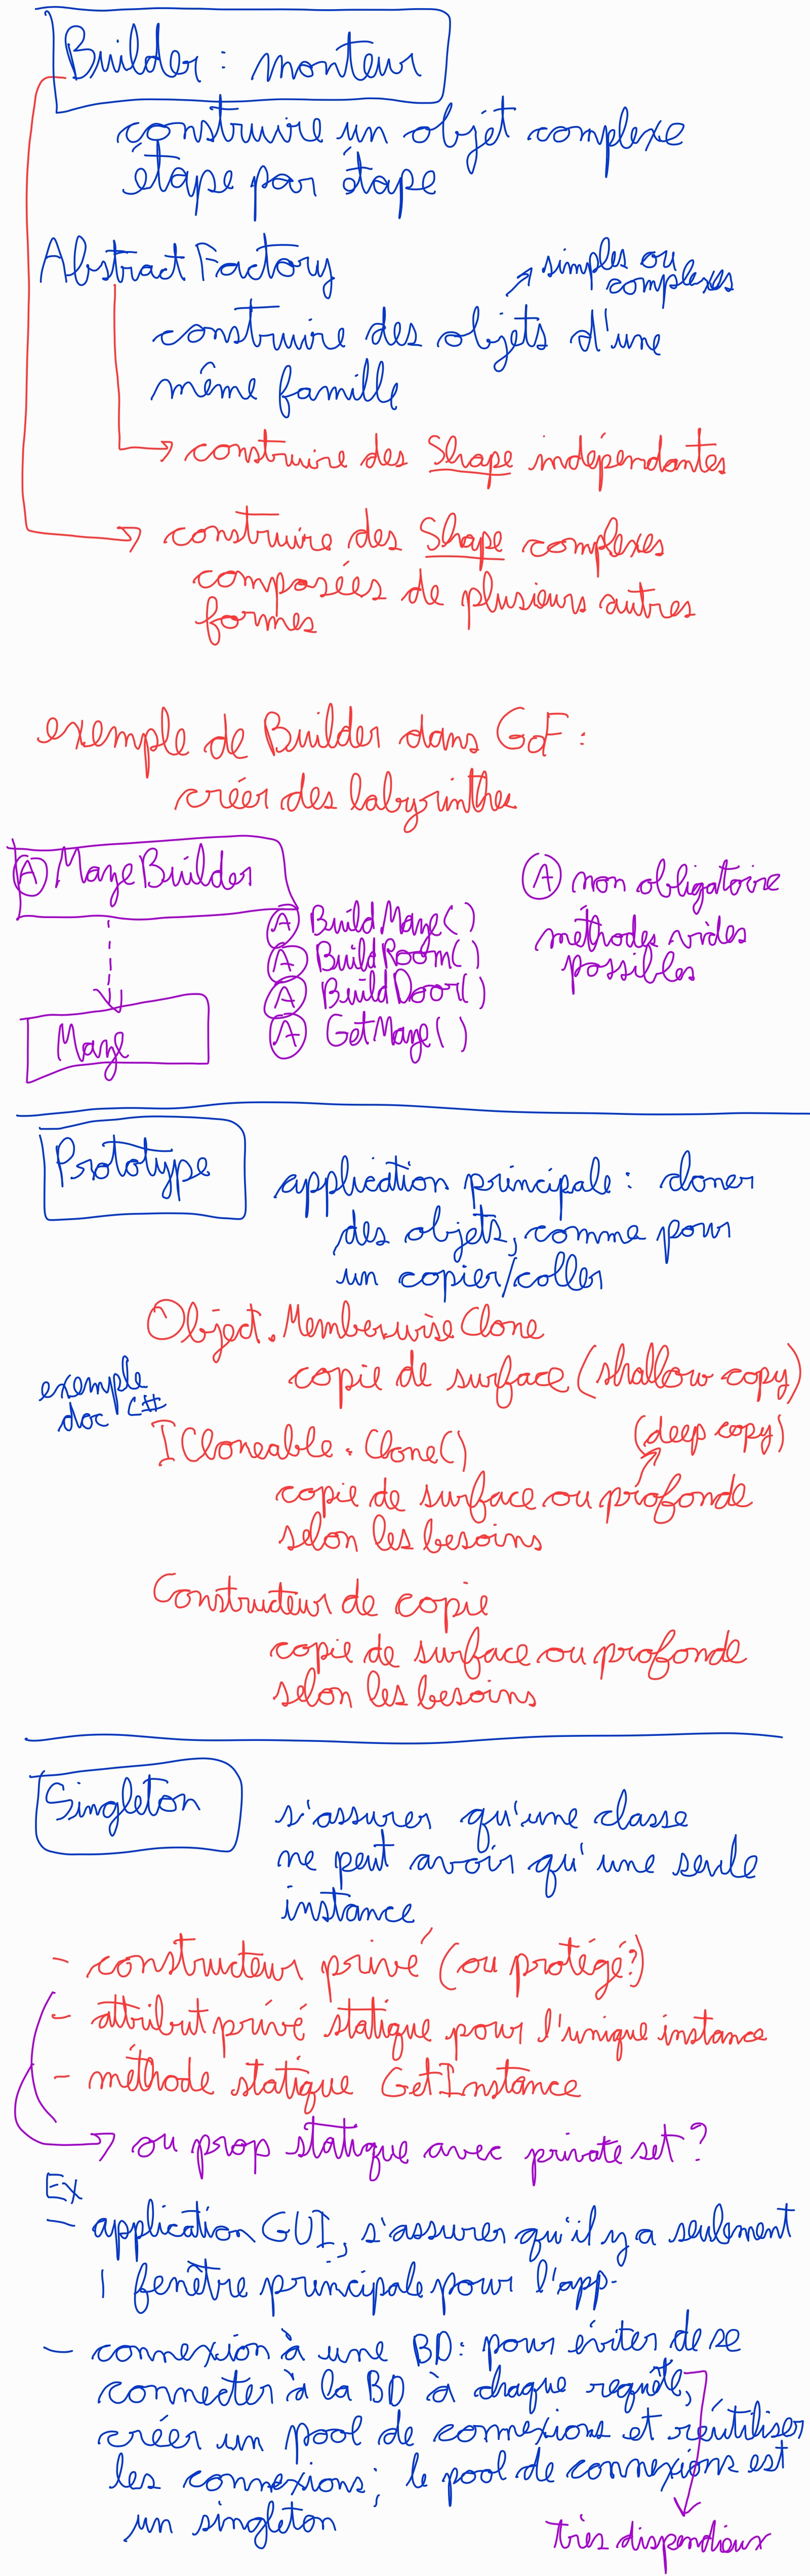 Builder : monteur
construire un objet complexe
étape par étape
Abstract Factory
simples ou
complexes
construire des objets d'une
même famille
construire des Shape indépendantes
construire des Shape complexes
composées de plusieurs autres
formes
exemple de Builder dans GoF :
créer des labyrinthes
A MazeBuilder
A BuildMaze()
A BuildRoom()
A BuildDoor()
A GetMaze()
Maze
A non obligatoire
méthodes vides
possibles
Prototype
application principale : cloner
des objets, comme pour
un copier/coller
Object.MemberwiseClone
copie de surface (shallow copy)
exemple
doc C#
ICloneable.Clone()
(deep copy)
copie de surface ou profonde
selon les besoins
Constructeur de copie
copie de surface ou profonde
selon les besoins
Singleton
s'assurer qu'une classe
ne peut avoir qu'une seule
instance
- constructeur privé (ou protégé?)
- attribut privé statique pour l'unique instance
- méthode statique GetInstance
ou prop statique avec private set ?
Ex
- application GUI, s'assurer qu'il y a seulement
1 fenêtre principale pour l'app.
- connexion à une BD: pour éviter de se
connecter à la BD à chaque requête,
créer un pool de connexions et réutiliser
les connexions; le pool de connexions est
un singleton
très dispendieux